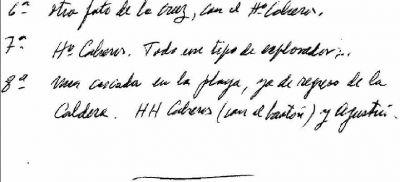 6ª otra foto de la cruz, con el Hº Cabreros.
7ª Hº Cabreros. Todo un tipo de explorador...
8ª Una cascada en la playa, ya de regreso de la
Caldera. HH Cabreros (con el bastón) y Agustín.